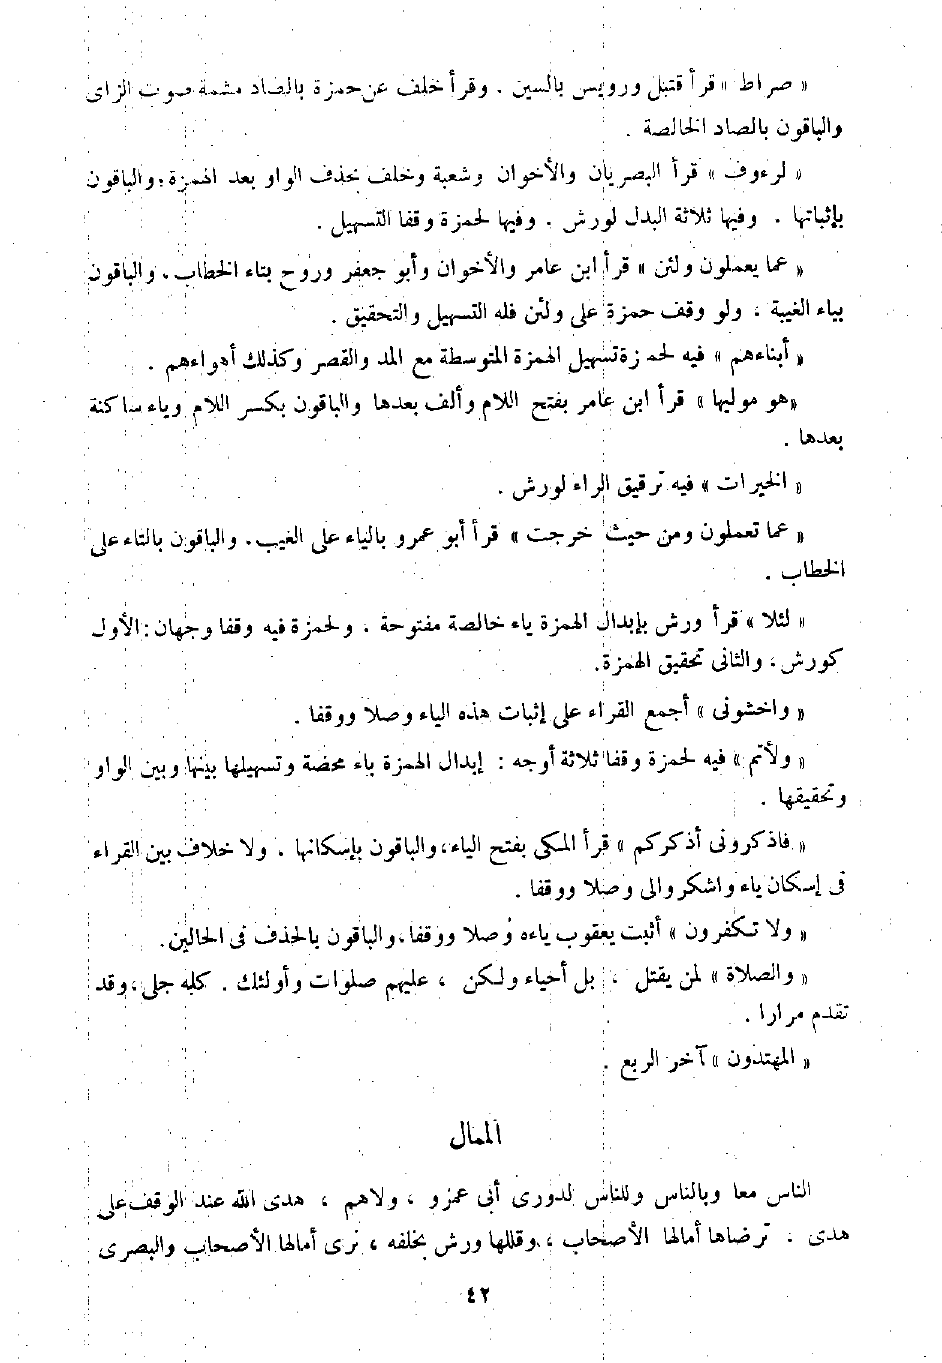 « صراط » قرأ قتبل ورويس بالسين . وقرأ خلف عن حمزة بالصاد مشمة صوت الزاى
والباقون بالصاد الخالصة .
« لرءوف » قرأ البصريان والأخوان وشعبة وخلف بحذف الواو بعد الهمزة ، والباقون
بإثباتها . وفيها ثلاثة البدل لورش . وفيها لحمزة وقفا التسهيل .
« عما يعملون ولئن » قرأ ابن عامر والأخوان وأبو جعفر وروح بتاء الخطاب . والباقون
بياء الغيبة ، ولو وقف حمزة على ولئن فله التسهيل والتحقيق .
« أبناءهم » فيه لحمزة تسهيل الهمزة المتوسطة مع المد والقصر وكذلك أهواءهم .
« هو موليها » قرأ ابن عامر بفتح اللام وألف بعدها والباقون بكسر اللام وياء ساكنة
بعدها .
« الخيرات » فيه ترقيق الراء لورش .
« عما تعملون ومن حيث خرجت » قرأ أبو عمرو بالياء على الغيب . والباقون بالتاء على
الخطاب .
« لئلا » قرأ ورش بإبدال الهمزة ياء خالصة مفتوحة . ولحمزة فيه وقفا وجهان : الأول
كورش ، والثانى تحقيق الهمزة .
« واخشونى » أجمع القراء على إثبات هذه الياء وصلا ووقفا .
« ولأتم » فيه لحمزة وقفا ثلاثة أوجه : إبدال الهمزة ياء محضة وتسهيلها بينها وبين الواو
وتحقيقها .
« فاذكرونى أذكركم » قرأ المكى بفتح الياء ، والباقون بإسكانها . ولا خلاف بين القراء
فى إسكان ياء واشكروالى وصلا ووقفا .
« ولا تكفرون » أثبت يعقوب ياءه وصلا ووقفا ، والباقون بالحذف فى الحالين .
« والصلاة » لمن يقتل ، بل أحياء ولكن ، عليهم صلوات وأولئك . كله جلى ، وقد
تقدم مرارا .
« المهتدون » آخر الربع .
الممال
الناس معا وبالناس وللناس لدورى أبى عمرو ، ولاهم ، هدى الله عند الوقف على
هدى . ترضاها أمالها الأصحاب ، وقللها ورش بخلفه ، نرى أمالها الأصحاب والبصرى
٤٢